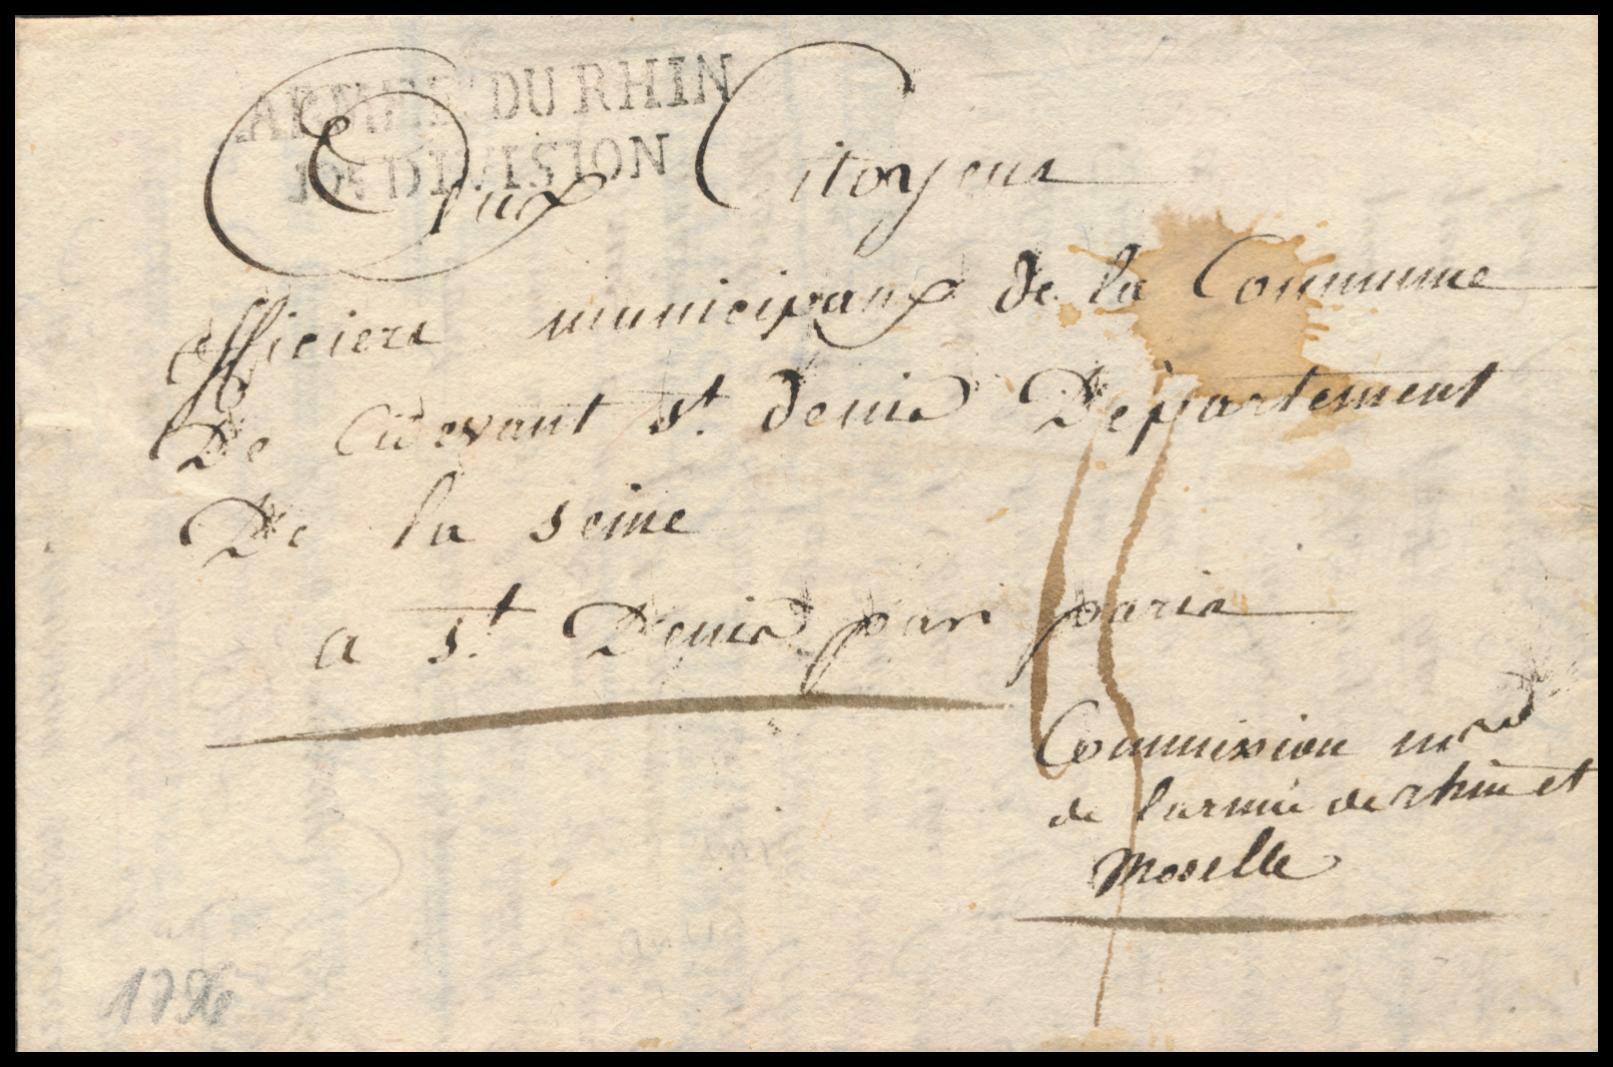 ARMEE DU RHIN
10e DIVISION
Aux Citoyens
officiers municipaux de la Commune
De Cidevant St. denis Département
De la seine
a St. Denis par paris
Commission mre
de larmée de rhin et
Moselle
1796